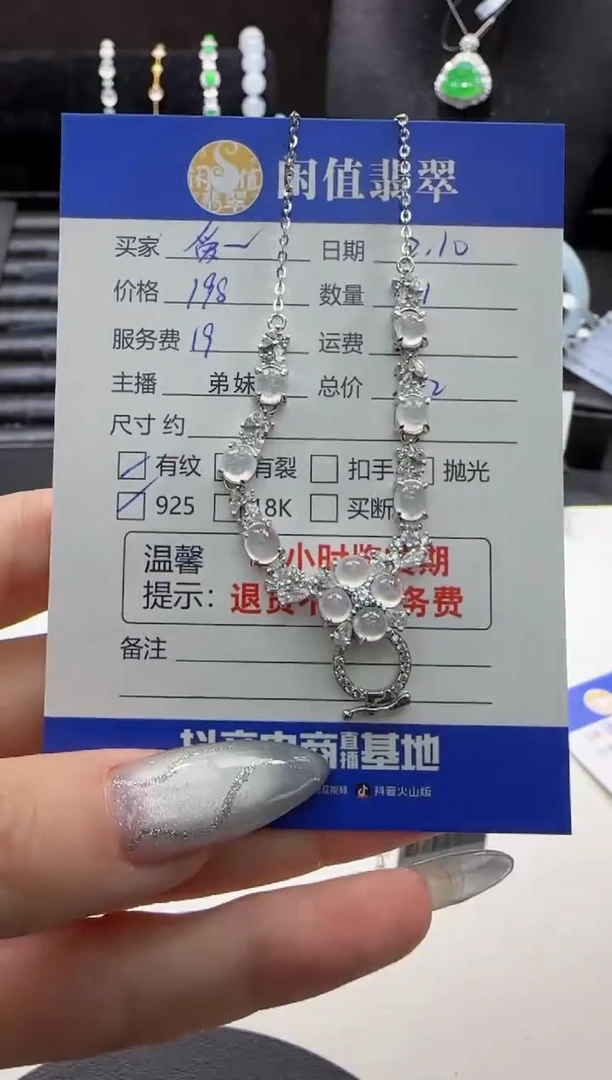 闲值翡翠
闲值翡翠
买家 日期 2.10
价格 198 数量 1
服务费 19 运费
主播 弟妹 总价 2
尺寸 约
有纹 有裂 扣手 抛光
925 18K 买断
温馨 小时 期
提示: 退货不 务费
备注
抖音电商直播基地
抖音火山版